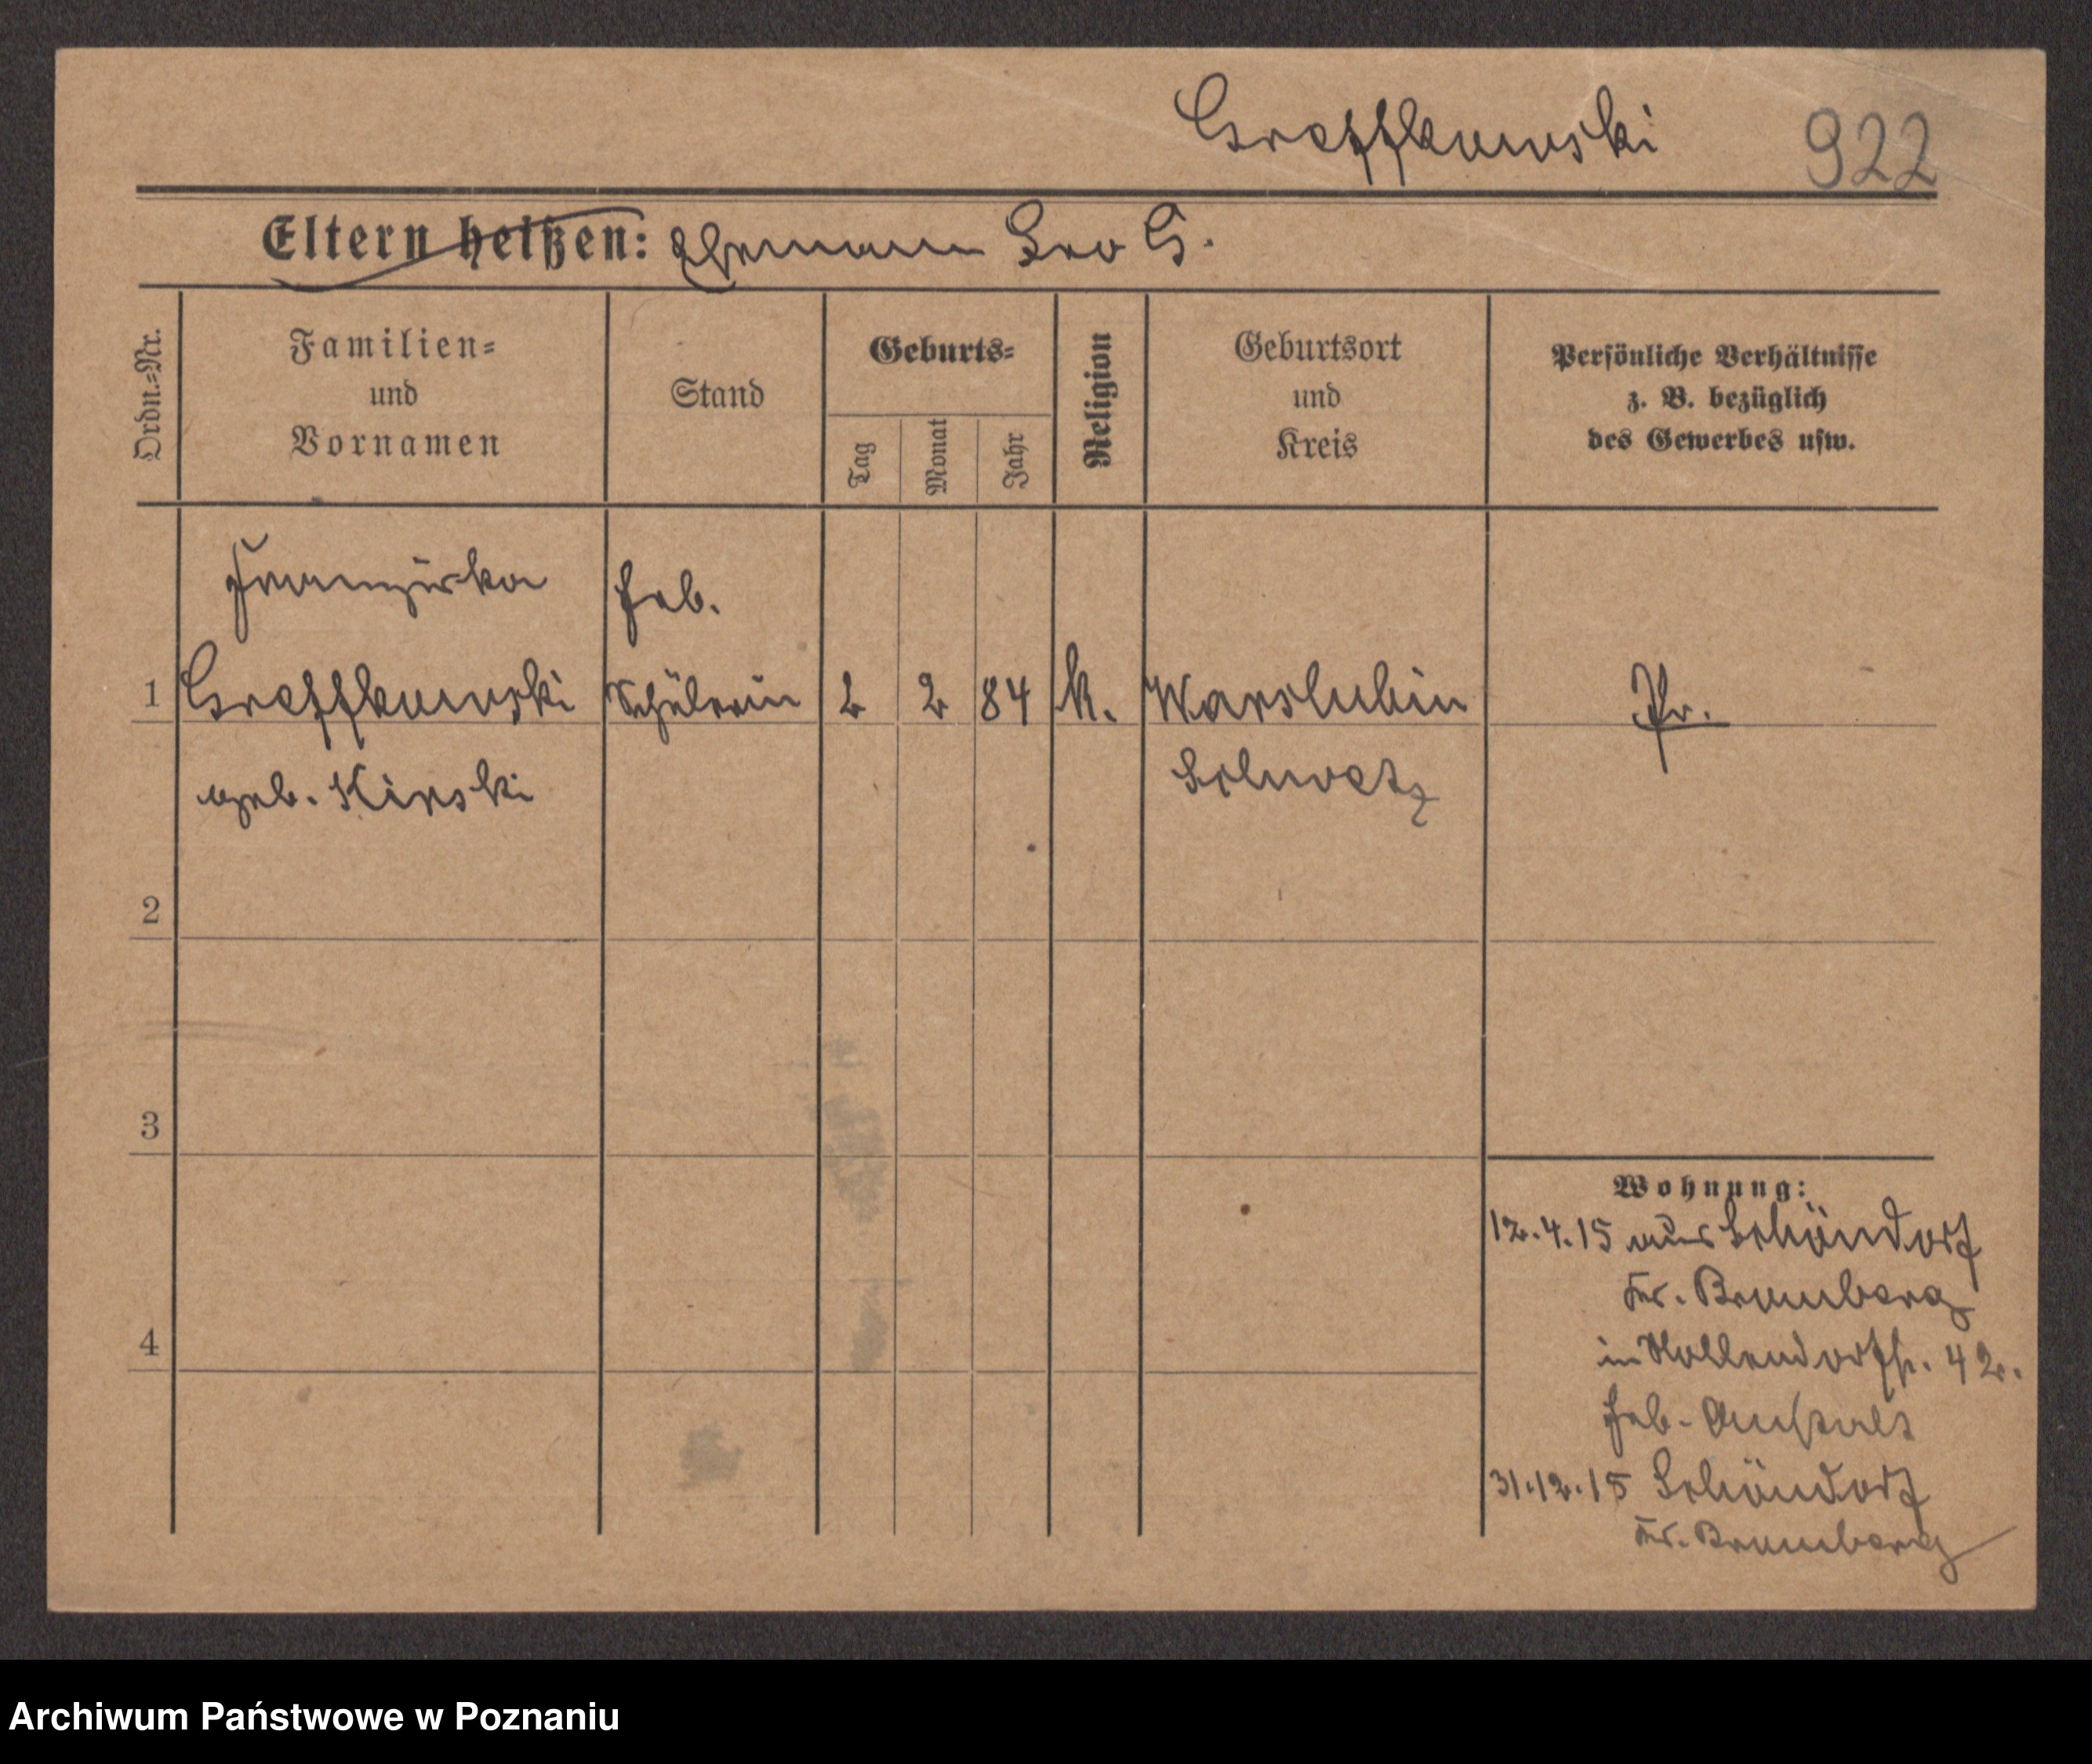 Greffkowski 922
Eltern heißen: Ehemann Leo G.
Ordn.=Nr.
Familien=
und
Vornamen
Stand
Geburts=
Tag
Monat
Jahr
Religion
Geburtsort
und
Kreis
Persönliche Verhältnisse
z. B. bezüglich
des Gewerbes usw.
Franziska Heb.
1 Greffkowski Schülerin 2 2 84 k. Warslubin Pr.
geb. Kirski Schwetz
2
3
4
Wohnung:
12.4.15 aus Schöndorf
Kr. Bromberg
in Nollendorfstr. 42.
Heb. Anstalt
31.12.15 Schöndorf
Kr. Bromberg
Archiwum Państwowe w Poznaniu